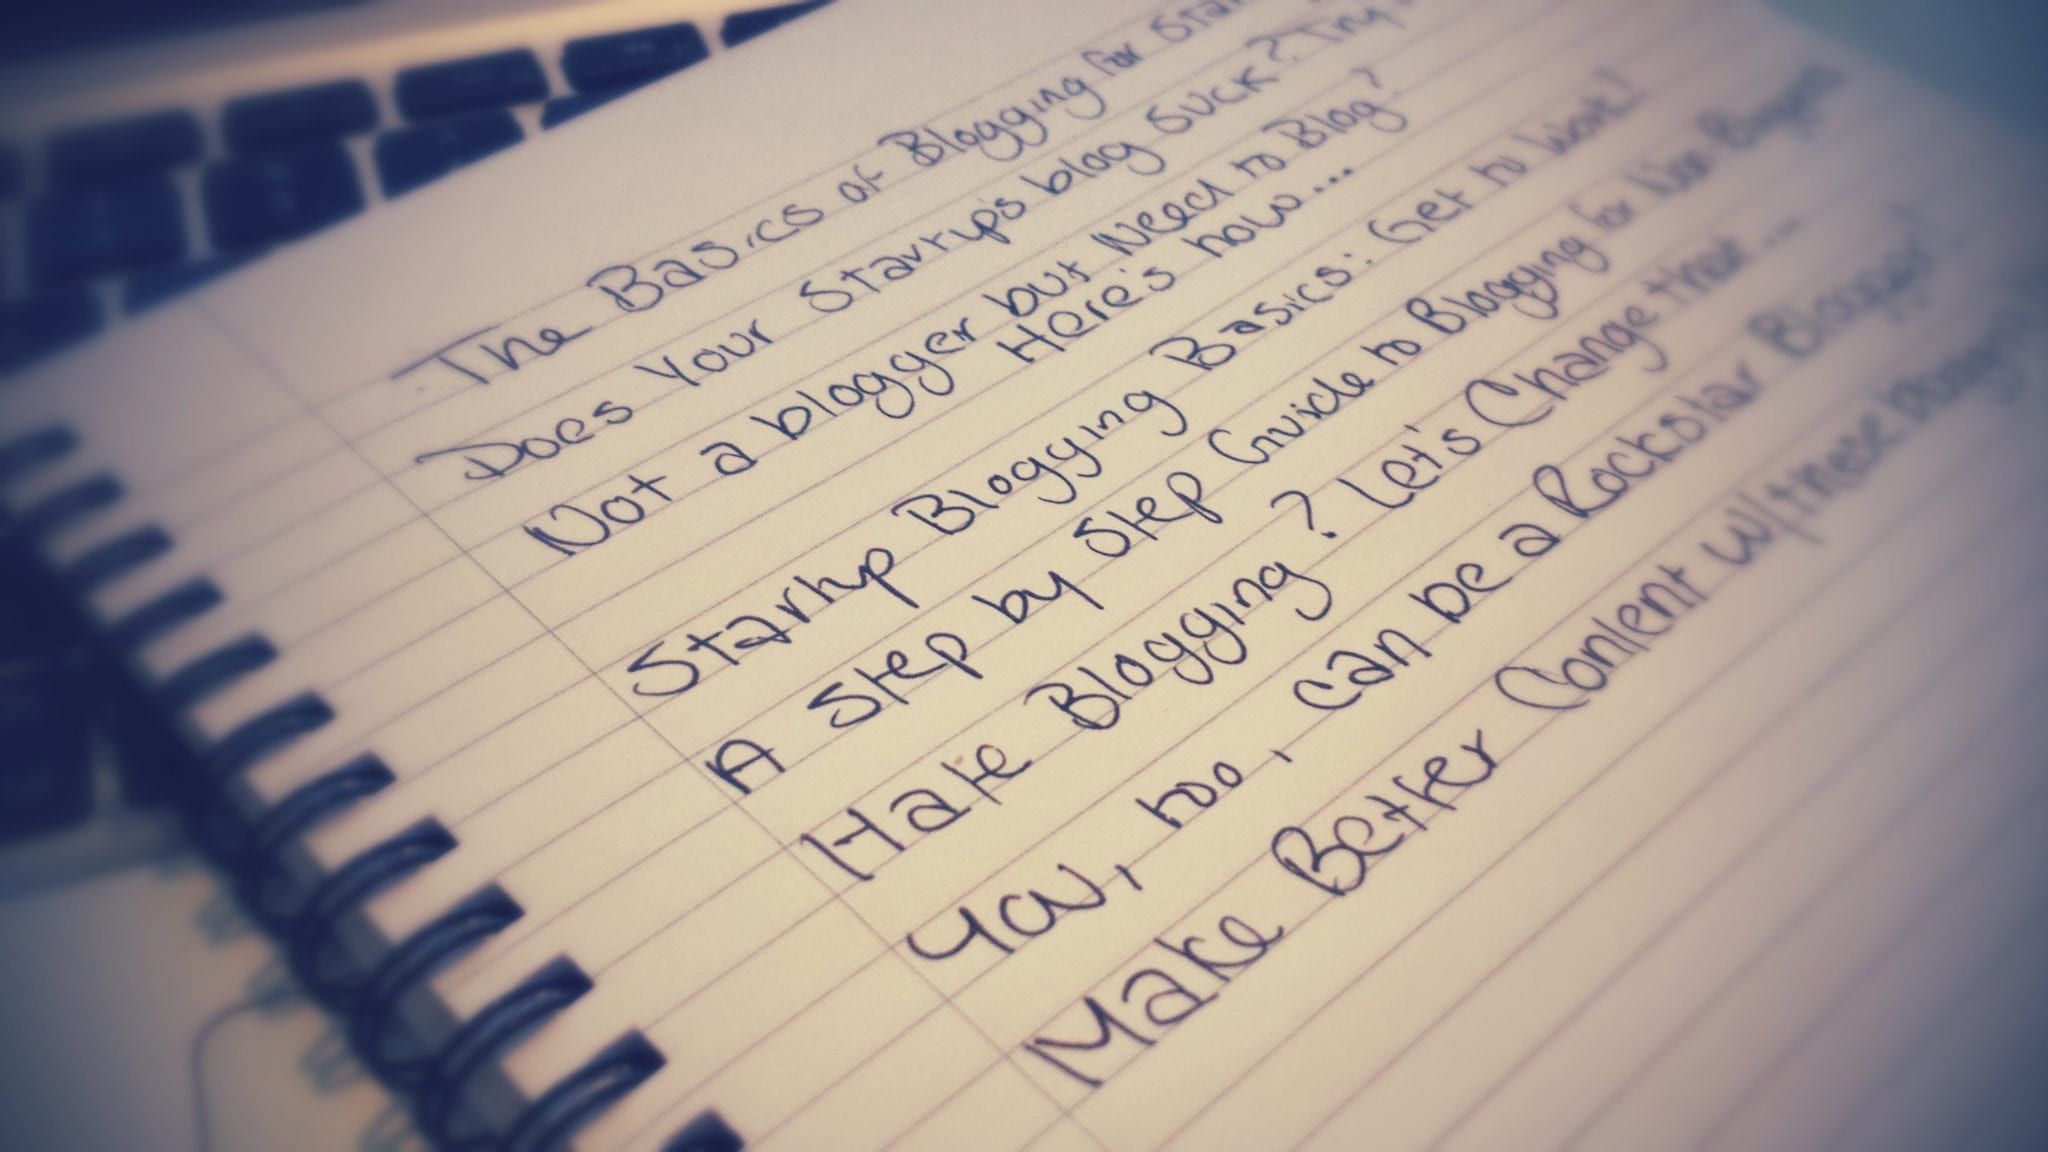 The Basics of Blogging for
Does Your Startup's blog Suck? Try
Not a blogger but Need to Blog?
Here's how...
Startup Blogging Basics: Get to Work!
A Step by Step Guide to Blogging for Non-Bloggers
Hate Blogging? Let's Change that...
You, too, can be a Rockstar Blogger!
Make Better Content w/these